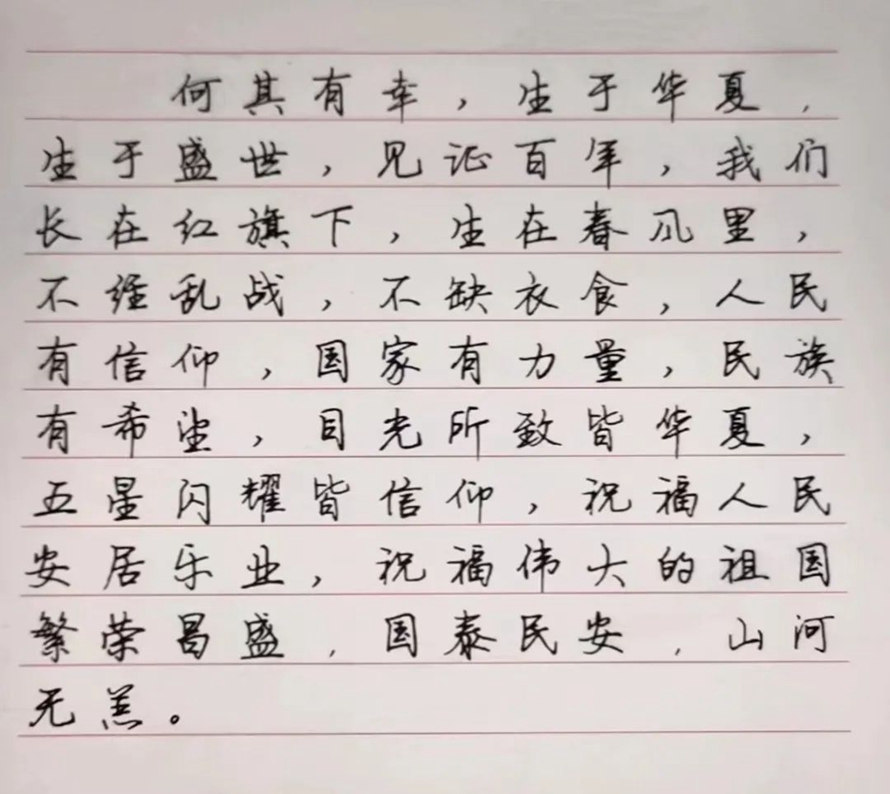 何其有幸，生于华夏，
生于盛世，见证百年，我们
长在红旗下，生在春风里，
不经乱战，不缺衣食，人民
有信仰，国家有力量，民族
有希望，目光所致皆华夏，
五星闪耀皆信仰，祝福人民
安居乐业，祝福伟大的祖国
繁荣昌盛，国泰民安，山河
无恙。